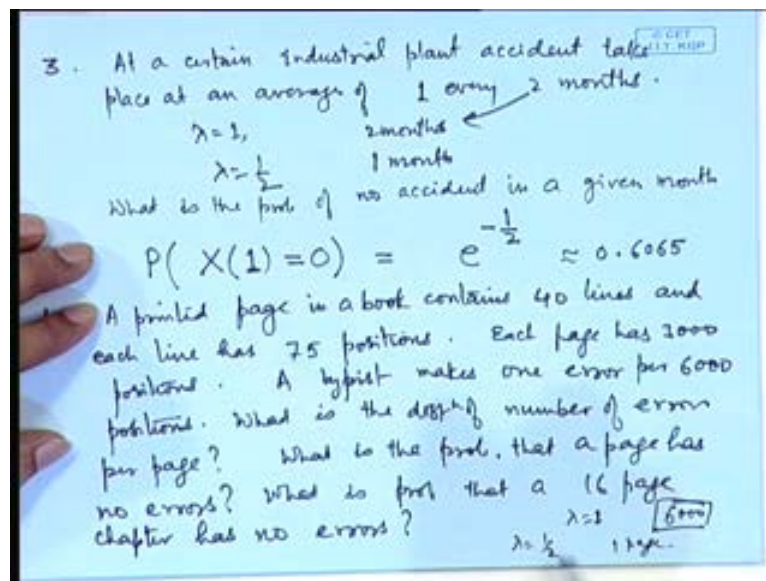 3. At a certain industrial plant accident take
place at an average of 1 every 2 months.
λ = 1, 2 months
λ = 1/2 1 month
What is the prob of no accident in a given month
P( X(1) = 0 ) = e^{-1/2} ≈ 0.6065
A printed page in a book contains 40 lines and
each line has 75 positions. Each page has 3000
positions. A typist makes one error per 6000
positions. What is the distⁿ of number of errors
per page? What is the prob. that a page has
no errors? What is prob that a 16 page
chapter has no errors?
λ = 1 6000
λ = 1/2 1 page.
© CET
I.I.T. KGP